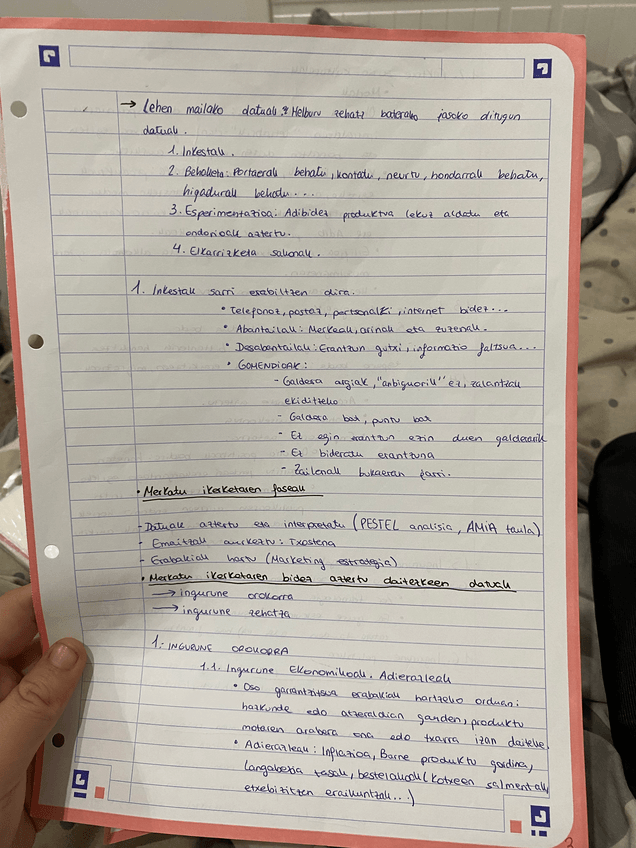 → Lehen mailako datuak: Helburu zehatz baterako jasoko ditugun
datuak.
1. Inkestak.
2. Behaketa: Portaerak behatu, kontatu, neurtu, hondarrak behatu,
higadurak behatu...
3. Esperimentazioa: Adibidez produktua lekuz aldatu eta
ondorioak aztertu.
4. Elkarrizketa sakonak.
1. Inkestak sarri erabiltzen dira.
• Telefonoz, postaz, pertsonalki, internet bidez...
• Abantailak: Merkeak, arinak eta zuzenak.
• Desabantailak: Erantzun gutxi, informazio faltsua...
• GOMENDIOAK:
- Galdera argiak, "anbiguorik" ez, zalantzak
ekiditzeko
- Galdera bat, puntu bat
- Ez egin erantzun ezin duen galderarik
- Ez bideratu erantzuna
- Zailenak bukaeran jarri.
• Merkatu ikerketaren faseak
- Datuak aztertu eta interpretatu (PESTEL analisia, AMIA taula)
- Emaitzak aurkeztu: Txostena
- Erabakiak hartu (Marketing estrategia)
• Merkatu ikerketaren bidez aztertu daitezkeen datuak
→ ingurune orokorra
→ ingurune zehatza
1.- INGURUNE OROKORRA
1.1. Ingurune Ekonomikoak. Adierazleak
• Oso garrantzitsua erabakiak hartzeko orduan:
hazkunde edo atzeraldian gauden, produktu
motaren arabera ona edo txarra izan daiteke.
• Adierazleak: Inflazioa, Barne produktu gordina,
Langabezia tasak, bestelakoak (kotxeen salmentak,
etxebizitzen eraikuntzak...)
3